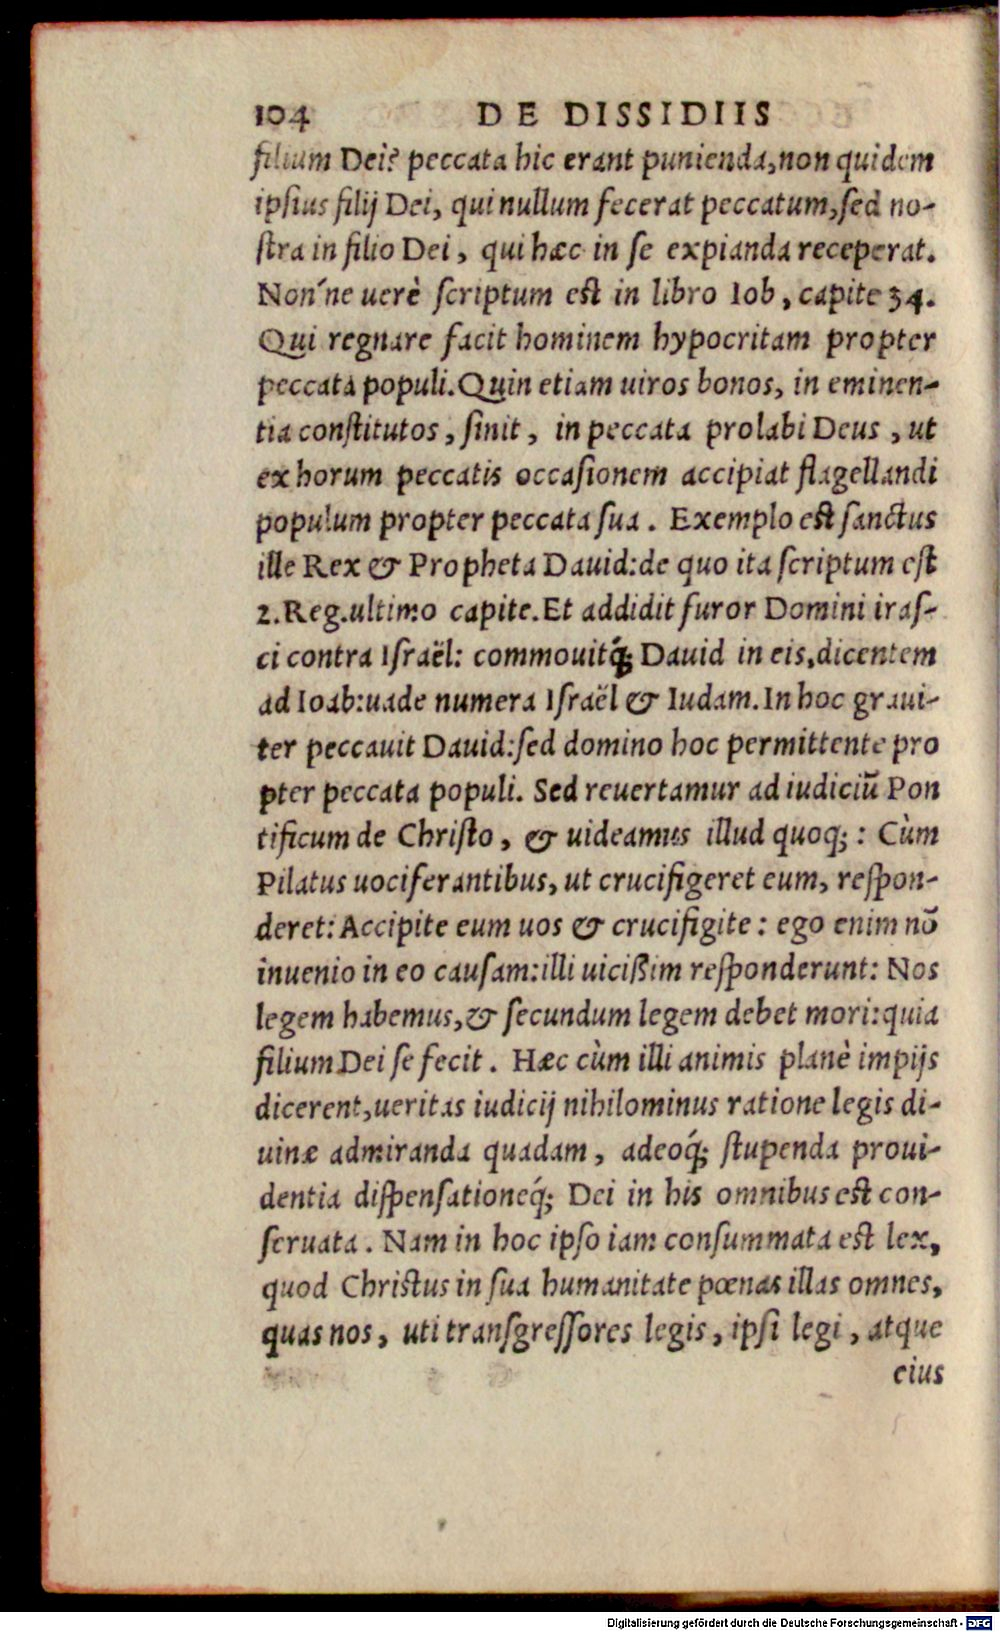 104 DE DISSIDIIS
filium Dei? peccata hic erant punienda, non quidem
ipsius filij Dei, qui nullum fecerat peccatum, sed no-
stra in filio Dei, qui hæc in se expianda receperat.
Non´ne uerè scriptum est in libro Iob, capite 34.
Qui regnare facit hominem hypocritam propter
peccata populi. Quin etiam uiros bonos, in eminen-
tia constitutos, sinit, in peccata prolabi Deus, ut
ex horum peccatis occasionem accipiat flagellandi
populum propter peccata sua. Exemplo est sanctus
ille Rex & Propheta Dauid: de quo ita scriptum est
2. Reg. ultimo capite. Et addidit furor Domini iras-
ci contra Israël: commouitq́; Dauid in eis, dicentem
ad Ioab: uade numera Israël & Iudam. In hoc graui-
ter peccauit Dauid: sed domino hoc permittente pro
pter peccata populi. Sed reuertamur ad iudiciũ Pon
tificum de Christo, & uideamus illud quoq;: Cùm
Pilatus uociferantibus, ut crucifigeret eum, respon-
deret: Accipite eum uos & crucifigite: ego enim nõ
inuenio in eo causam: illi uicißim responderunt: Nos
legem habemus, & secundum legem debet mori: quia
filium Dei se fecit. Hæc cùm illi animis planè impijs
dicerent, ueritas iudicij nihilominus ratione legis di-
uinæ admiranda quadam, adeoq́; stupenda proui-
dentia dispensationeq́; Dei in his omnibus est con-
seruata. Nam in hoc ipso iam consummata est lex,
quod Christus in sua humanitate pœnas illas omnes,
quas nos, uti transgressores legis, ipsi legi, atque
eius
Digitalisierung gefördert durch die Deutsche Forschungsgemeinschaft - DFG